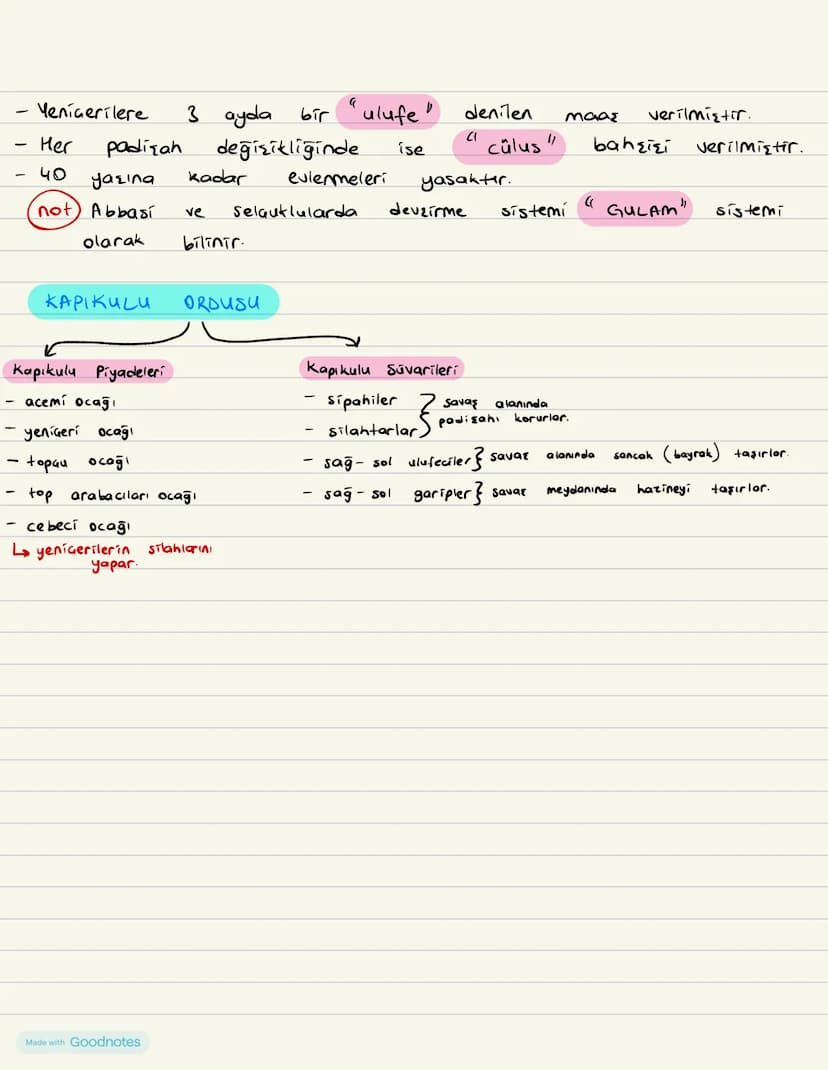 - Yeniçerilere 3 ayda bir "ulufe" denilen maaş verilmiştir.
- Her padişah değişikliğinde ise "cülus" bahşişi verilmiştir.
- 40 yaşına kadar evlenmeleri yasaktır.
not Abbasi ve Selçuklularda devşirme sistemi "GULAM" sistemi
olarak bilinir.
KAPIKULU ORDUSU
Kapıkulu Piyadeleri
- acemi ocağı
- yeniçeri ocağı
- topçu ocağı
- top arabacıları ocağı
- cebeci ocağı
↳ yeniçerilerin silahlarını
yapar.
Kapıkulu Süvarileri
- sipahiler } savaş alanında
- silahtarlar } padişahı korurlar.
- sağ - sol ulufeciler } savaş alanında sancak (bayrak) taşırlar.
- sağ - sol garipler } savaş meydanında hazineyi taşırlar.
Made with Goodnotes